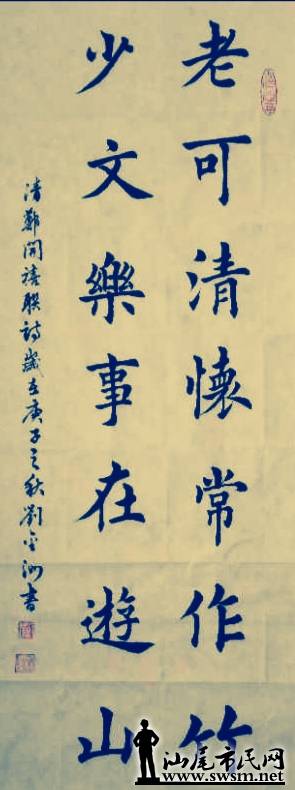 老可清懷常作竹
少文樂事在遊山
清鄭開禧聯詩歲在庚子之秋劉金洲書
汕尾市民网
www.swsm.net